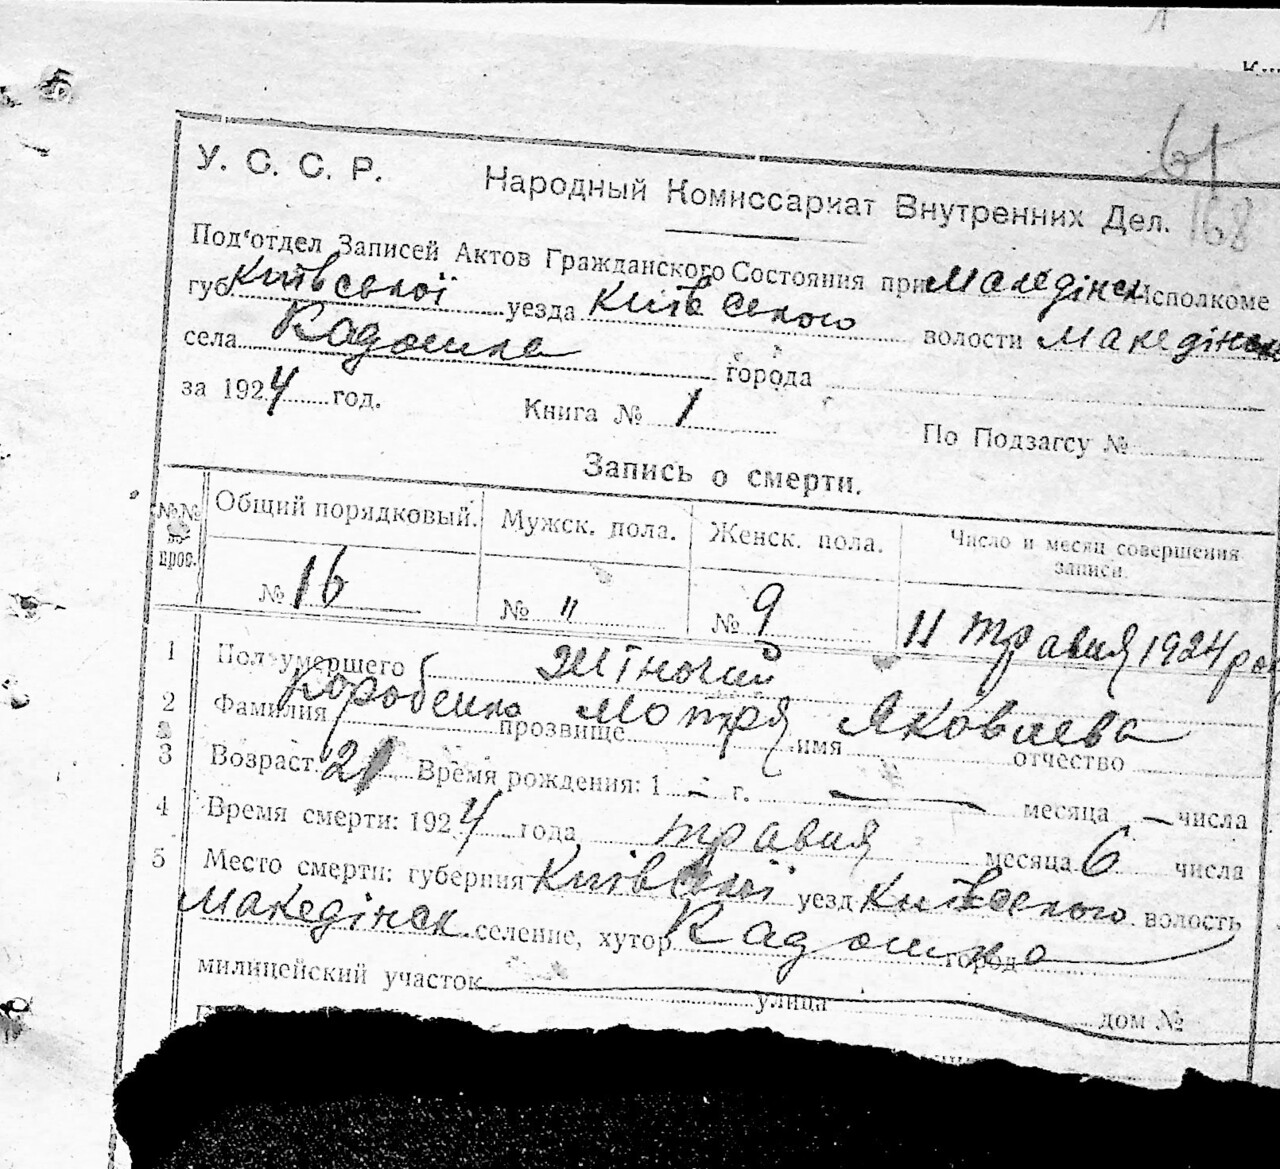 61
168
У. С. С. Р. Народный Комиссариат Внутренних Дел.
Под'отдел Записей Актов Гражданского Состояния при Македінск Исполкоме
губ. Київської уезда Київського волости Македінск
села Кадомка города
за 1924 год. Книга № 1 По Подзагсу №
Запись о смерти.
№№ Общий порядковый. Мужск. пола. Женск. пола. Число и месяц совершения записи.
№ 16 № " № 9 11 травня 1924 рок
1 Пол умершего жіночий
2 Фамилия Коробенко прозвище Мотря имя Яковлева отчество
3 Возраст 21 Время рождения: 1 – г. — месяца — числа
4 Время смерти: 1924 года травня месяца 6 числа
5 Место смерти: губерния Київської уезд Київського волость
Македінск селение, хутор Кадомка город
милицейский участок улица дом №